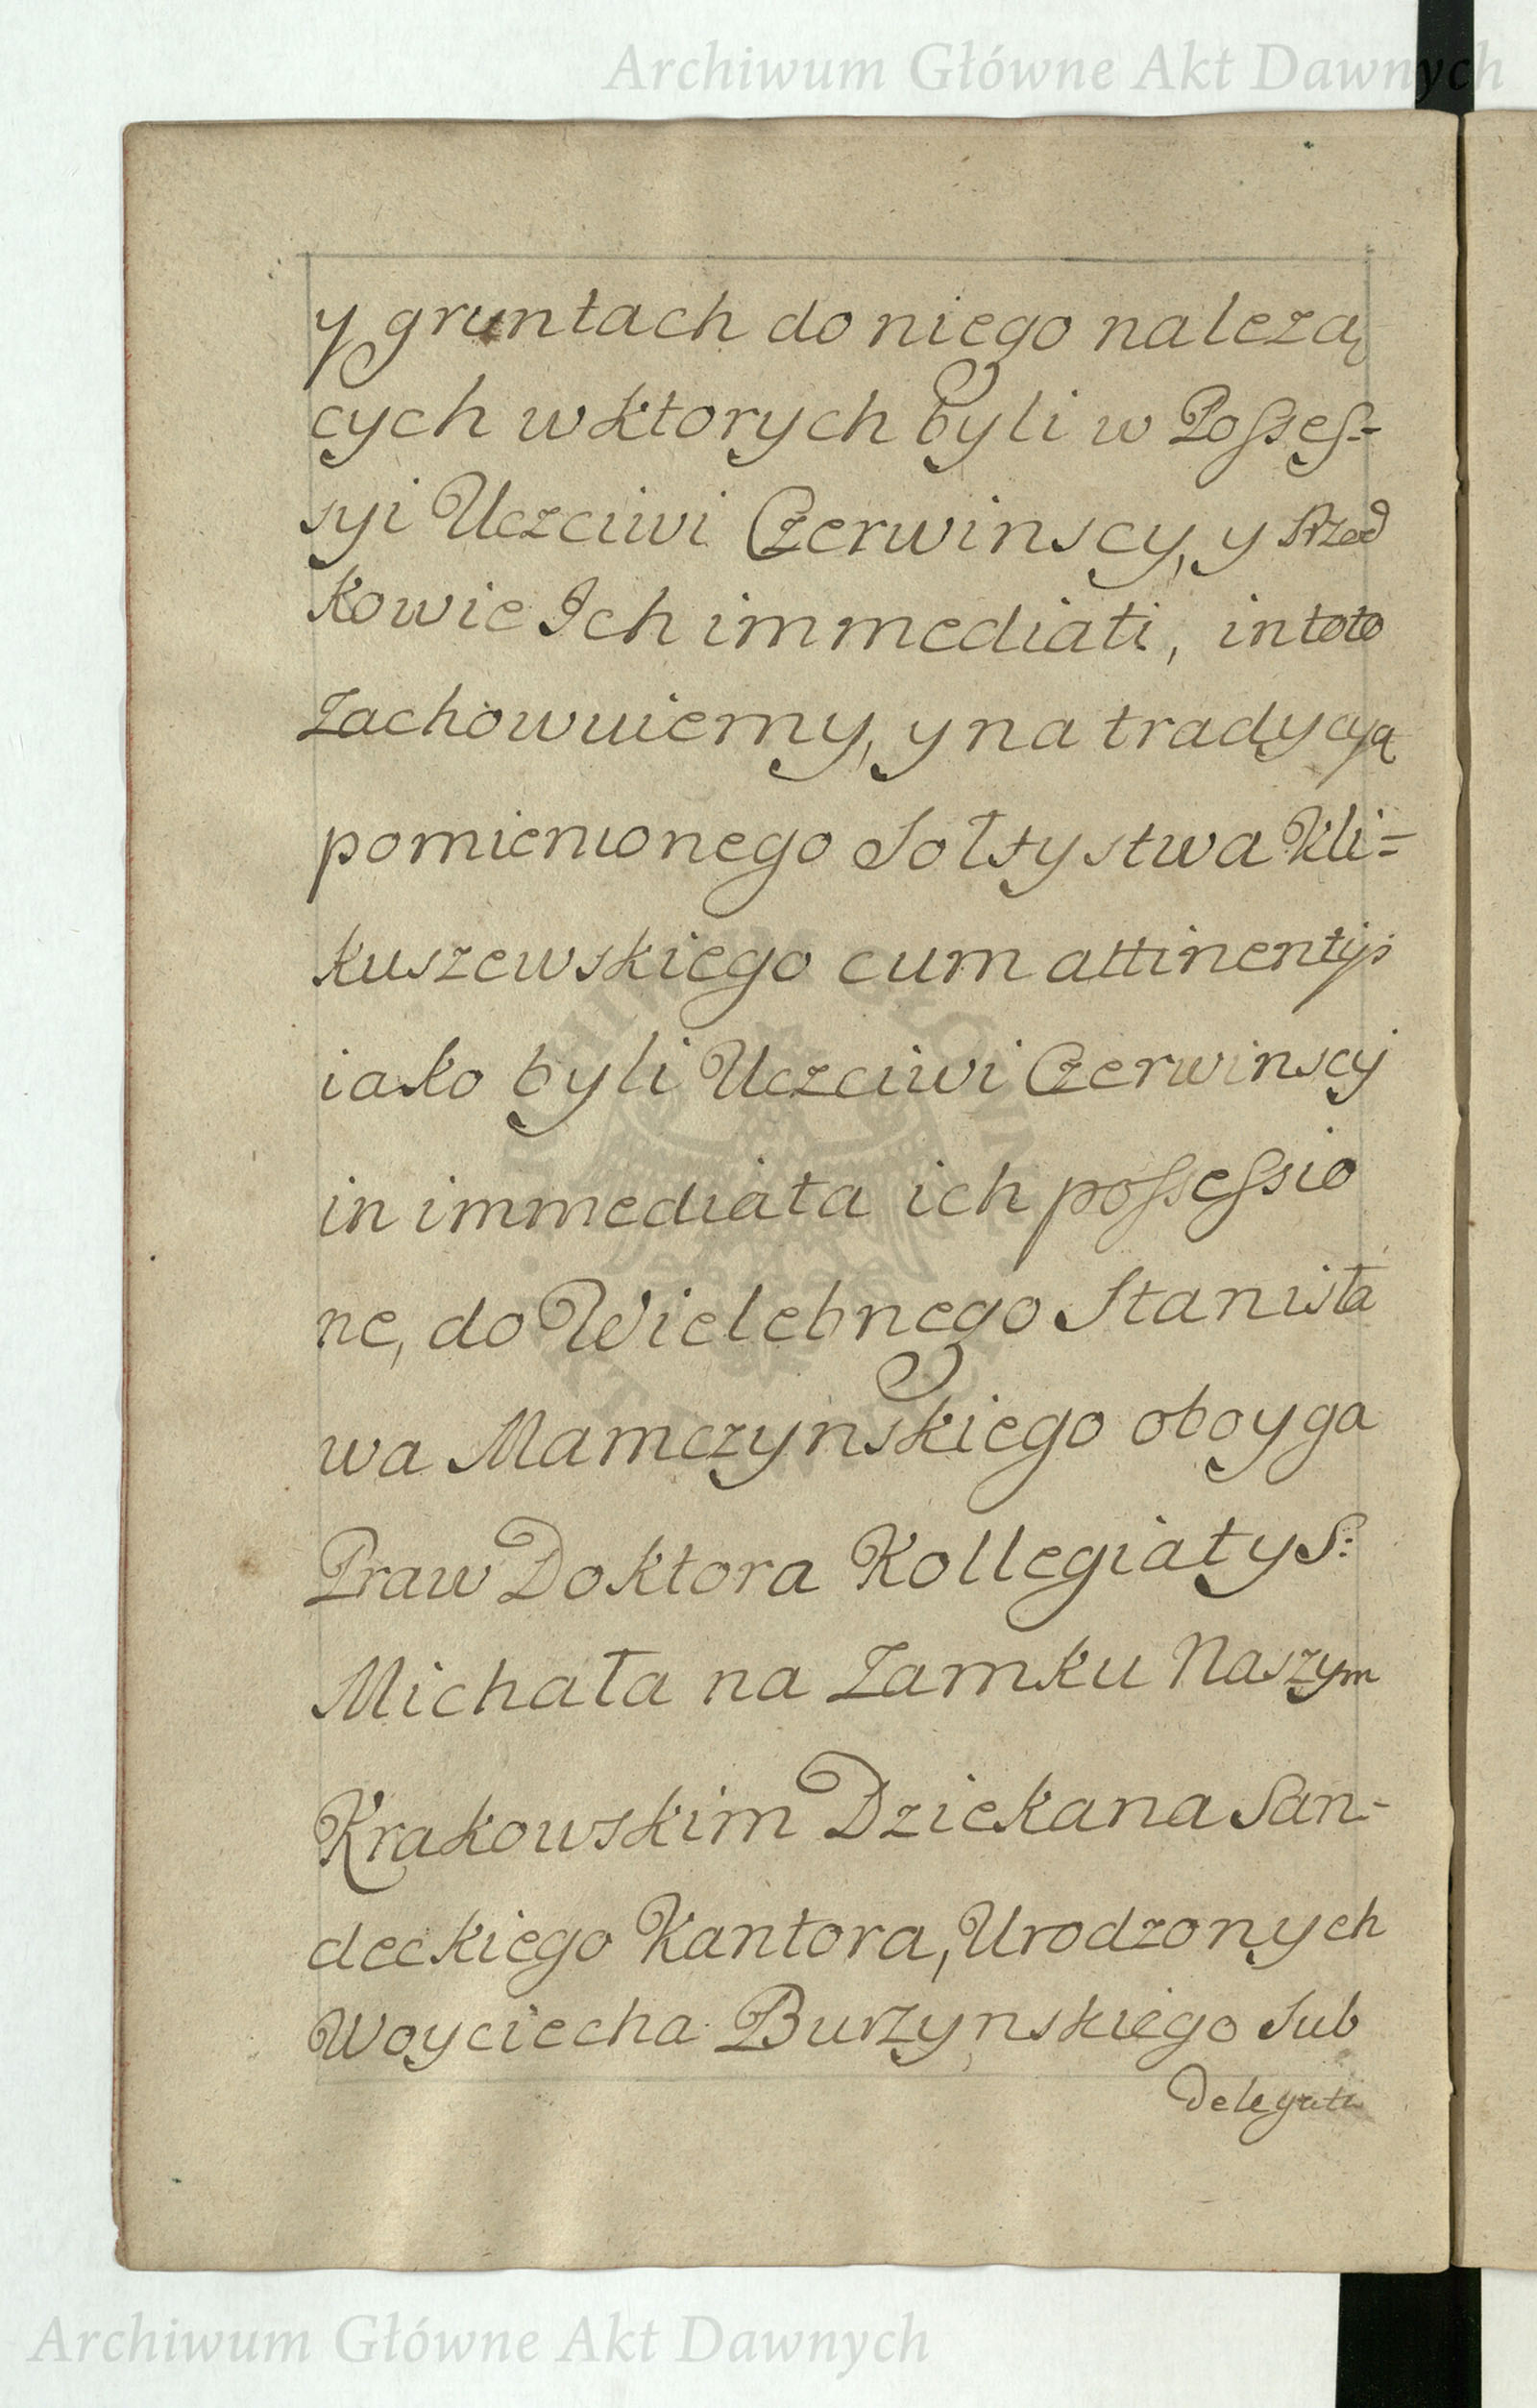 Archiwum Główne Akt Dawnych
y gruntach do niego nalezą
cych w ktorych byli w Possess-
syi Uczciwi Czerwinscy, y Przod
kowie Ich immediati, in toto
Zachowuiemy, y na tradycyą
pomienionego Sołtystwa Kli=
kuszewskiego cum attinentijs
iako byli Uczciwi Czerwinscy
in immediata ich possessio
ne, do Wielebnego Stanisła
wa Mamczynskiego oboyga
Praw Doktora Kollegiaty S:
Michała na Zamku Naszym
Krakowskim Dziekana San-
deckiego Kantora, Urodzonych
Woyciecha Burzynskiego Sub
Delegata
Archiwum Główne Akt Dawnych